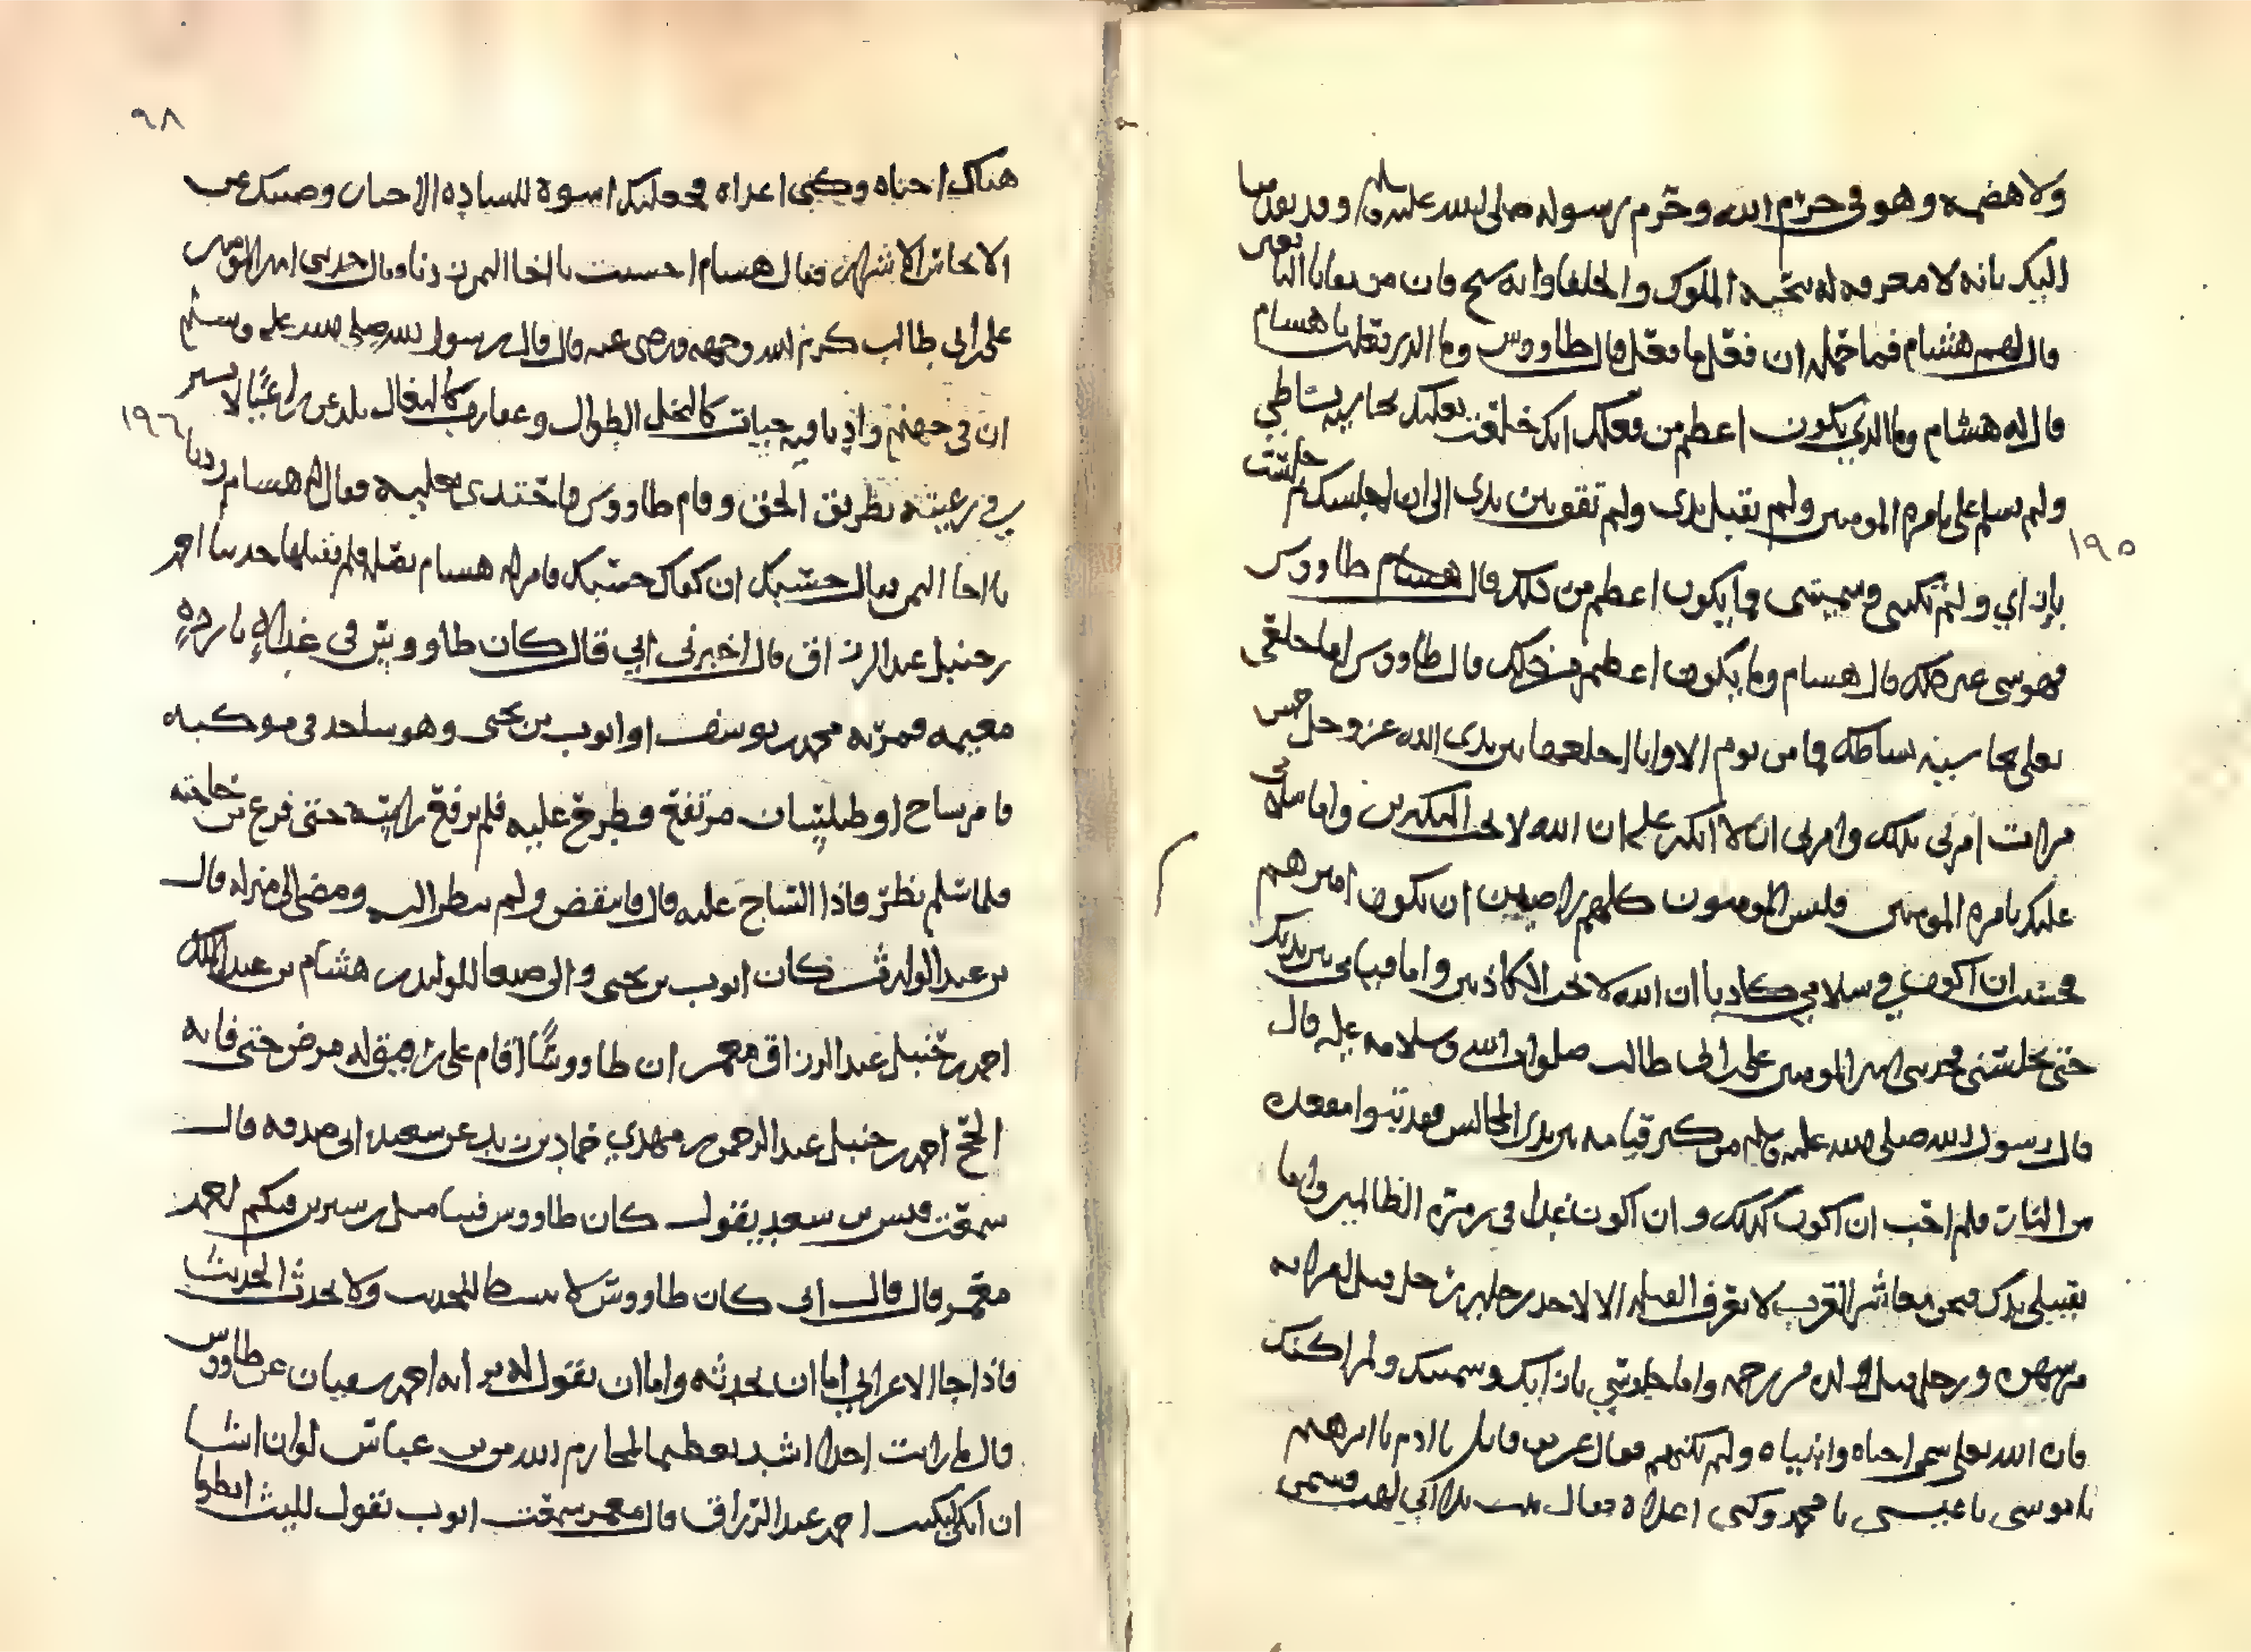 ولا هضمه وهو في حرم الله وحرم رسوله صلى الله عليه وسلم وقد بعد
اليك بانه لا معرفه له بتحيه الملوك والخلفا وانه شيخ فان من بقايا التابعين
قال لهم هشام فما حمله ان فعل ما فعل قال طاووس وما الذي فعلت يا هشام
قال له هشام وما الذي يكون اعظم من فعلك انك خلعت نعليك بحاشيه بساطي
ولم تسلم علي بامره المومنين ولم تقبل يدي ولم تقف بين يدي الى ان اجلسك ثم جلست
بازاي ولم تكنني وسميتني وما يكون اعظم من ذلك قال هشام طاووس
فهو شي غير ذلك قال هشام وما يكون اعظم من ذلك قال طاووس اما خلعي
نعلي بحاشيه بساطك فما من يوم الا وانا اخلعهما بين يدي الله عز وجل خمس
مرات امرني بذلك وامرني ان لا اتكبر علم ان الله لا يحب المتكبرين واما سلامي
عليك بامره المومنين فليس المومنون كلهم راضيين ان يكون اميرهم
فخشيت ان اكون في سلامي كاذبا ان الله لا يحب الكاذبين واما قيامي بين يديك
حتى تجلسني فحدثني امير المومنين علي بن ابي طالب صلوات الله وسلامه عليه قال
قال رسول الله صلى الله عليه وسلم من كبر قيامه بين يدي الجالس فقد تبوا مقعده
من النار فلم احب ان اكون كذلك وان اكون غدا في زمرة الظالمين واما
تقبيلي يدك فنحن معاشر العرب لا نعرف القبله الا لاحد رجلين رجل قبل امراته
من شهوه ورجل قبل ولده من رحمه واما جلوسي بازايك وسميتك ولم اكنك
فان الله تعالى سمى احباه وانبياه ولم يكنهم فقال عز من قايل يا ادم يا ابرهيم
يا موسى يا عيسى يا محمد وكنى اعداه فقال تبت يدا ابي لهب فسمى
١٩٥
٩٨
هناك احباه وكنى اعداه فجعلتك اسوة للساده الاخيار وصنتك عن
الانحاش الاشرار فقال هشام احسنت يا اخا اليمن زدنا فقال حدثني امير المومنين
علي بن ابي طالب كرم الله وجهه ورضي عنه قال قال رسول الله صلى الله عليه وسلم
ان في جهنم واديا فيه حيات كالنخل الطوال وعقارب كالبغال تلدغ راعيا لا يسير
في رعيته بطريق الحق وقام طاووس فاحتذى نعليه فقال له هشام زدنا
١٩٦
يا اخا اليمن فقال حسبك ان كفاك حسبك فامر له هشام بصله فلم يقبلها حدثنا احمد
بن حنبل عبد الرزاق قال اخبرني ابي قال كان طاووس في غداه بارده
مغيمه فمر به محمد بن يوسف او ايوب بن يحيى وهو ساجد في موكبه
فامر بساج او طيلسان مرتفع فطرح عليه فلم يرفع راسه حتى فرغ من حاجته
فلما سلم نظر فاذا الساج عليه قال فانتفض ولم ينظر اليه ومضى الى منزله قال
بن عبد الوارث كان ايوب بن يحيى والي صنعا للوليد بن هشام بن عبد الملك
احمد بن حنبل عبد الرزاق معمر ان طاووسا اقام على رفيق له مرض حتى فاته
الحج احمد بن حنبل عبد الرحمن بن مهدي حماد بن زيد عن سعيد بن ابي صدقه قال
سمعت قيس بن سعد يقول كان طاووس فينا مثل بن سيرين فيكم احمد
معمر قال قال ابي كان طاووس لا يبسط للحديث ولا يحدث الحديث
فاذا جا الاعرابي اما ان يحدثه واما ان يقول له احمد سفيان عن طاووس
قال ما رايت احدا اشد تعظيما لمحارم الله من بن عباس لو ان اشا
ان ابكي لبكيت احمد عبد الرزاق قال معمر سمعت ايوب يقول لليث انظر ما